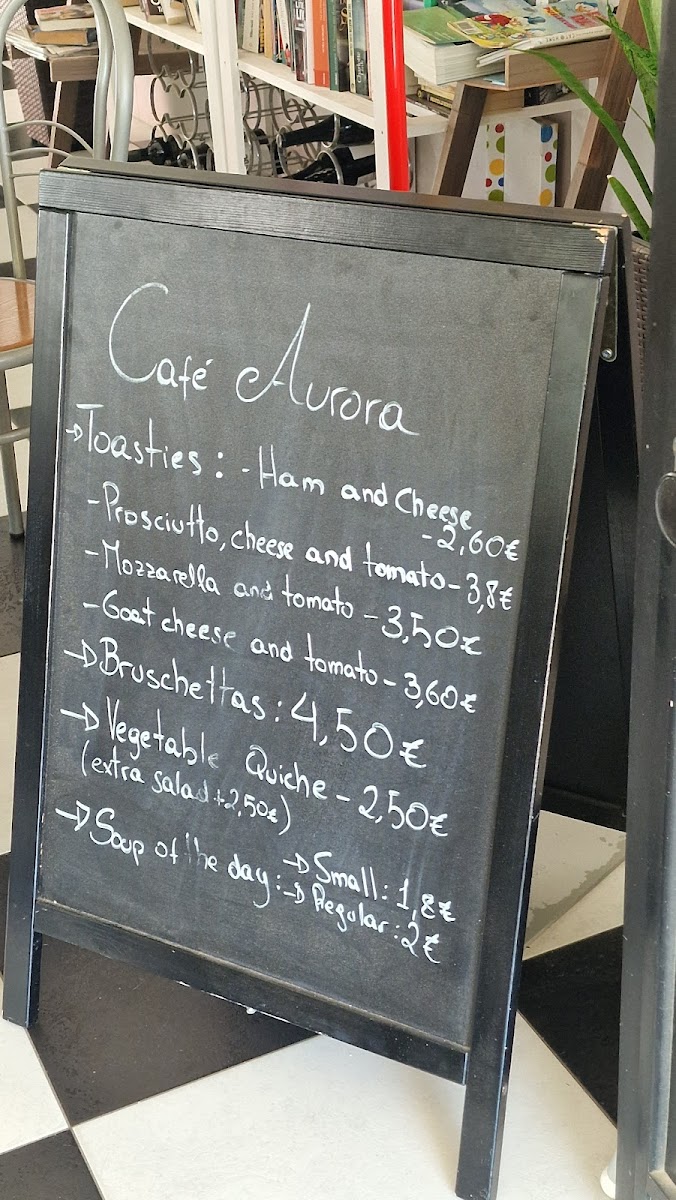 Café Aurora
→Toasties: - Ham and Cheese
- 2,60€
- Prosciutto, cheese and tomato - 3,8€
- Mozzarella and tomato - 3,50€
- Goat cheese and tomato - 3,60€
→Bruschettas: 4,50€
→Vegetable Quiche - 2,50€
(extra salad +2,50€)
→Soup of the day: →Small: 1,8€
→Regular: 2€